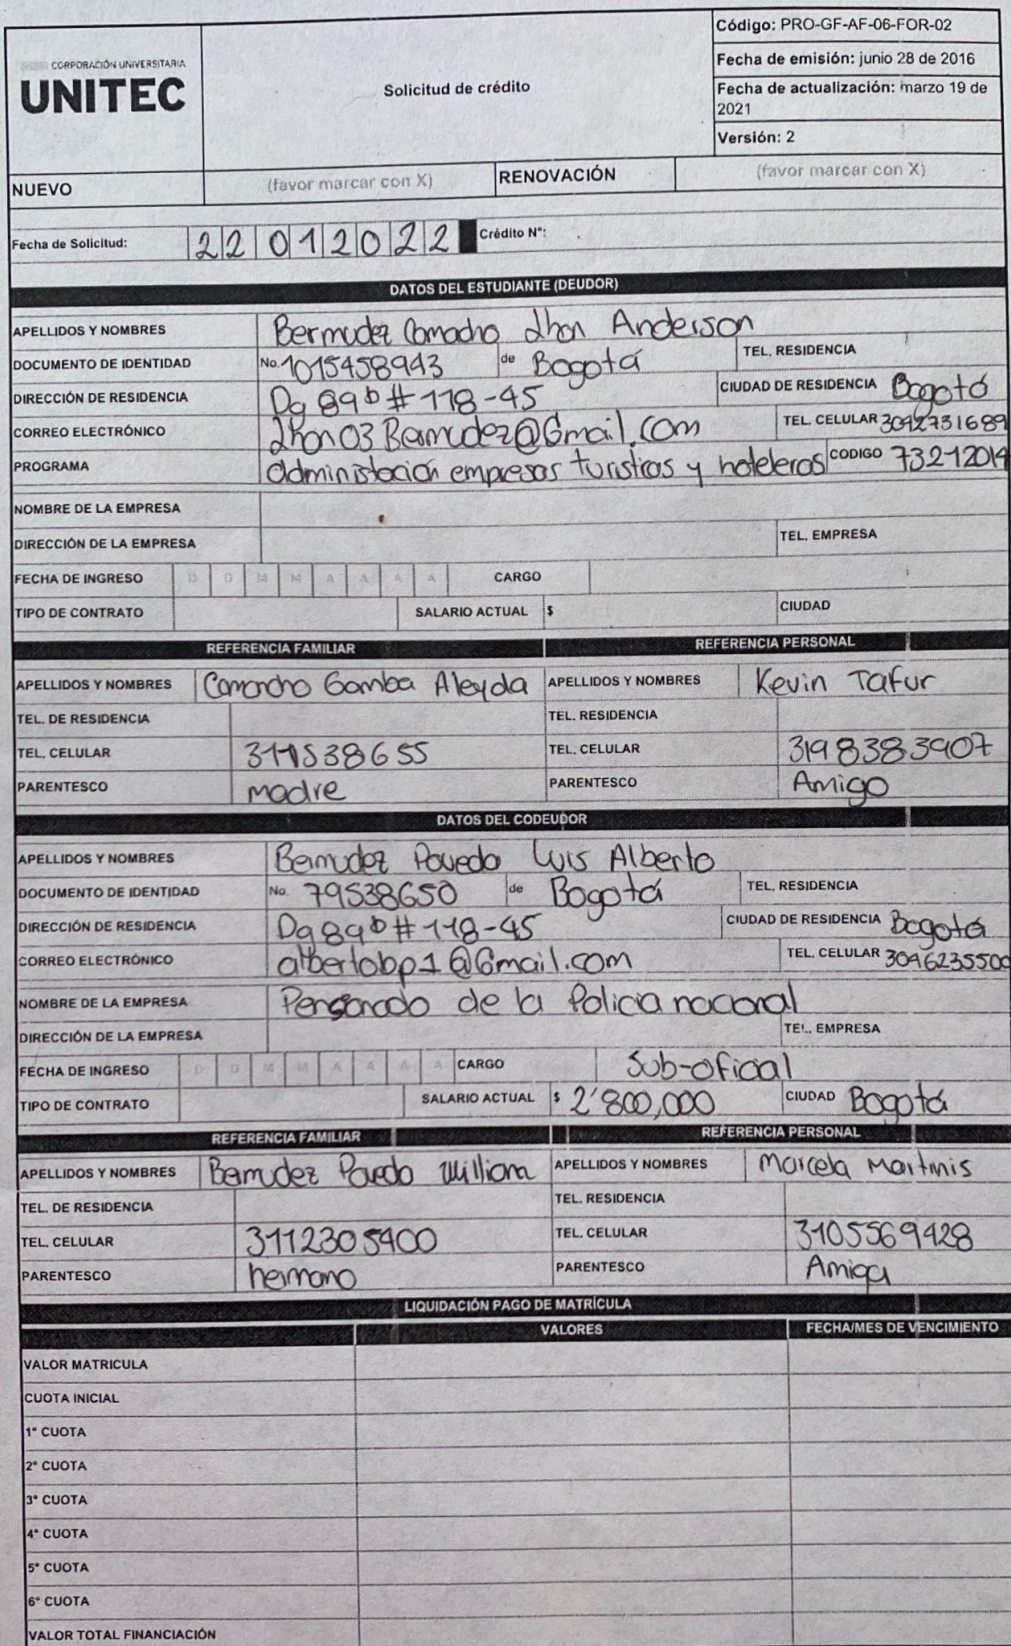 CORPORACIÓN UNIVERSITARIA
UNITEC
Solicitud de crédito
Código: PRO-GF-AF-06-FOR-02
Fecha de emisión: junio 28 de 2016
Fecha de actualización: marzo 19 de
2021
Versión: 2
NUEVO (favor marcar con X) RENOVACIÓN (favor marcar con X)
Fecha de Solicitud: 22012022 Crédito N°:
DATOS DEL ESTUDIANTE (DEUDOR)
APELLIDOS Y NOMBRES Bermudez Camacho Jhon Anderson
DOCUMENTO DE IDENTIDAD No. 1015458943 de Bogotá TEL. RESIDENCIA
DIRECCIÓN DE RESIDENCIA Dg 89b # 118-45 CIUDAD DE RESIDENCIA Bogotá
CORREO ELECTRÓNICO Jhon03Bermudez@Gmail.com TEL. CELULAR 3042731689
PROGRAMA administración empresas turisticas y hoteleras CODIGO 73212014
NOMBRE DE LA EMPRESA
DIRECCIÓN DE LA EMPRESA TEL. EMPRESA
FECHA DE INGRESO D D M M A A A A CARGO
TIPO DE CONTRATO SALARIO ACTUAL $ CIUDAD
REFERENCIA FAMILIAR REFERENCIA PERSONAL
APELLIDOS Y NOMBRES Camacho Gamba Aleyda APELLIDOS Y NOMBRES Kevin Tafur
TEL. DE RESIDENCIA TEL. RESIDENCIA
TEL. CELULAR TEL. CELULAR 3198383907
PARENTESCO madre PARENTESCO Amigo
DATOS DEL CODEUDOR
APELLIDOS Y NOMBRES Bermudez Poveda Luis Alberto
DOCUMENTO DE IDENTIDAD No. 79538650 de Bogotá TEL. RESIDENCIA
DIRECCIÓN DE RESIDENCIA Dg 89b # 118-45 CIUDAD DE RESIDENCIA Bogotá
CORREO ELECTRÓNICO albertobp1@Gmail.com TEL. CELULAR 3046235500
NOMBRE DE LA EMPRESA Pensonado de la Policia nacional
DIRECCIÓN DE LA EMPRESA TEL. EMPRESA
FECHA DE INGRESO D D M M A A A A CARGO Sub-oficial
TIPO DE CONTRATO SALARIO ACTUAL $ 2'800,000 CIUDAD Bogotá
REFERENCIA FAMILIAR REFERENCIA PERSONAL
APELLIDOS Y NOMBRES Bermudez Poveda William APELLIDOS Y NOMBRES Marcela Martinis
TEL. DE RESIDENCIA TEL. RESIDENCIA
TEL. CELULAR 3112305400 TEL. CELULAR 3105569428
PARENTESCO hermano PARENTESCO Amiga
LIQUIDACIÓN PAGO DE MATRÍCULA
VALORES FECHA/MES DE VENCIMIENTO
VALOR MATRICULA
CUOTA INICIAL
1° CUOTA
2° CUOTA
3° CUOTA
4° CUOTA
5° CUOTA
6° CUOTA
VALOR TOTAL FINANCIACIÓN